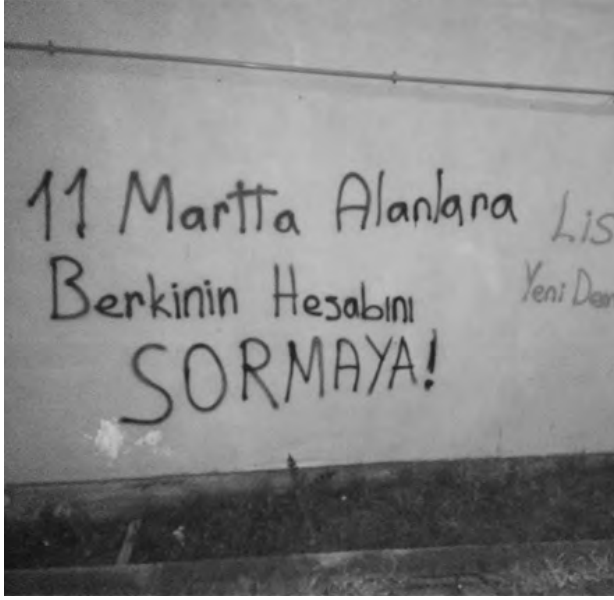 11 Martta Alanlara
Berkinin Hesabını
SORMAYA!
Lis
Yeni Dem